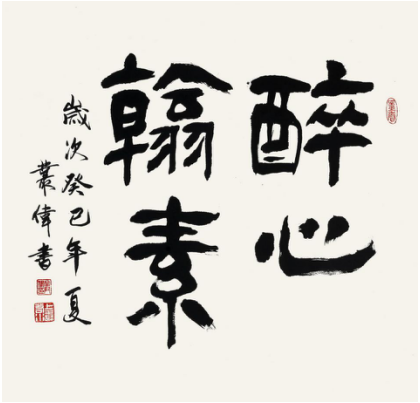 醉心
翰素
歲次癸巳年夏
叢偉書